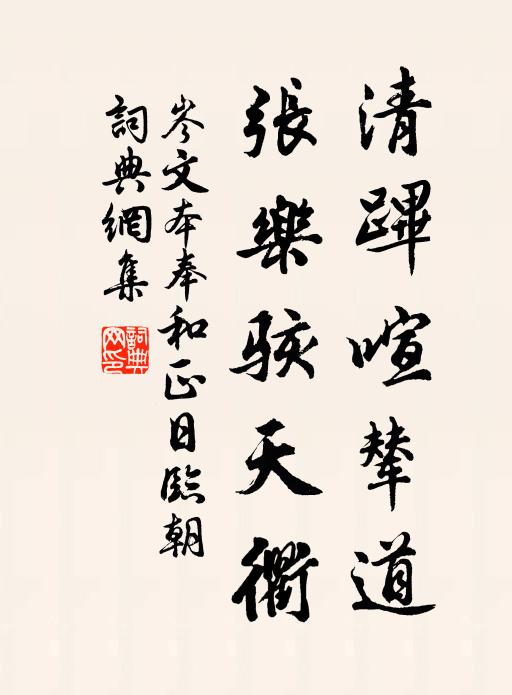 清蹕喧輦道
張樂駭天衢
岑文本奉和正日臨朝
詞典網集
詞典網印